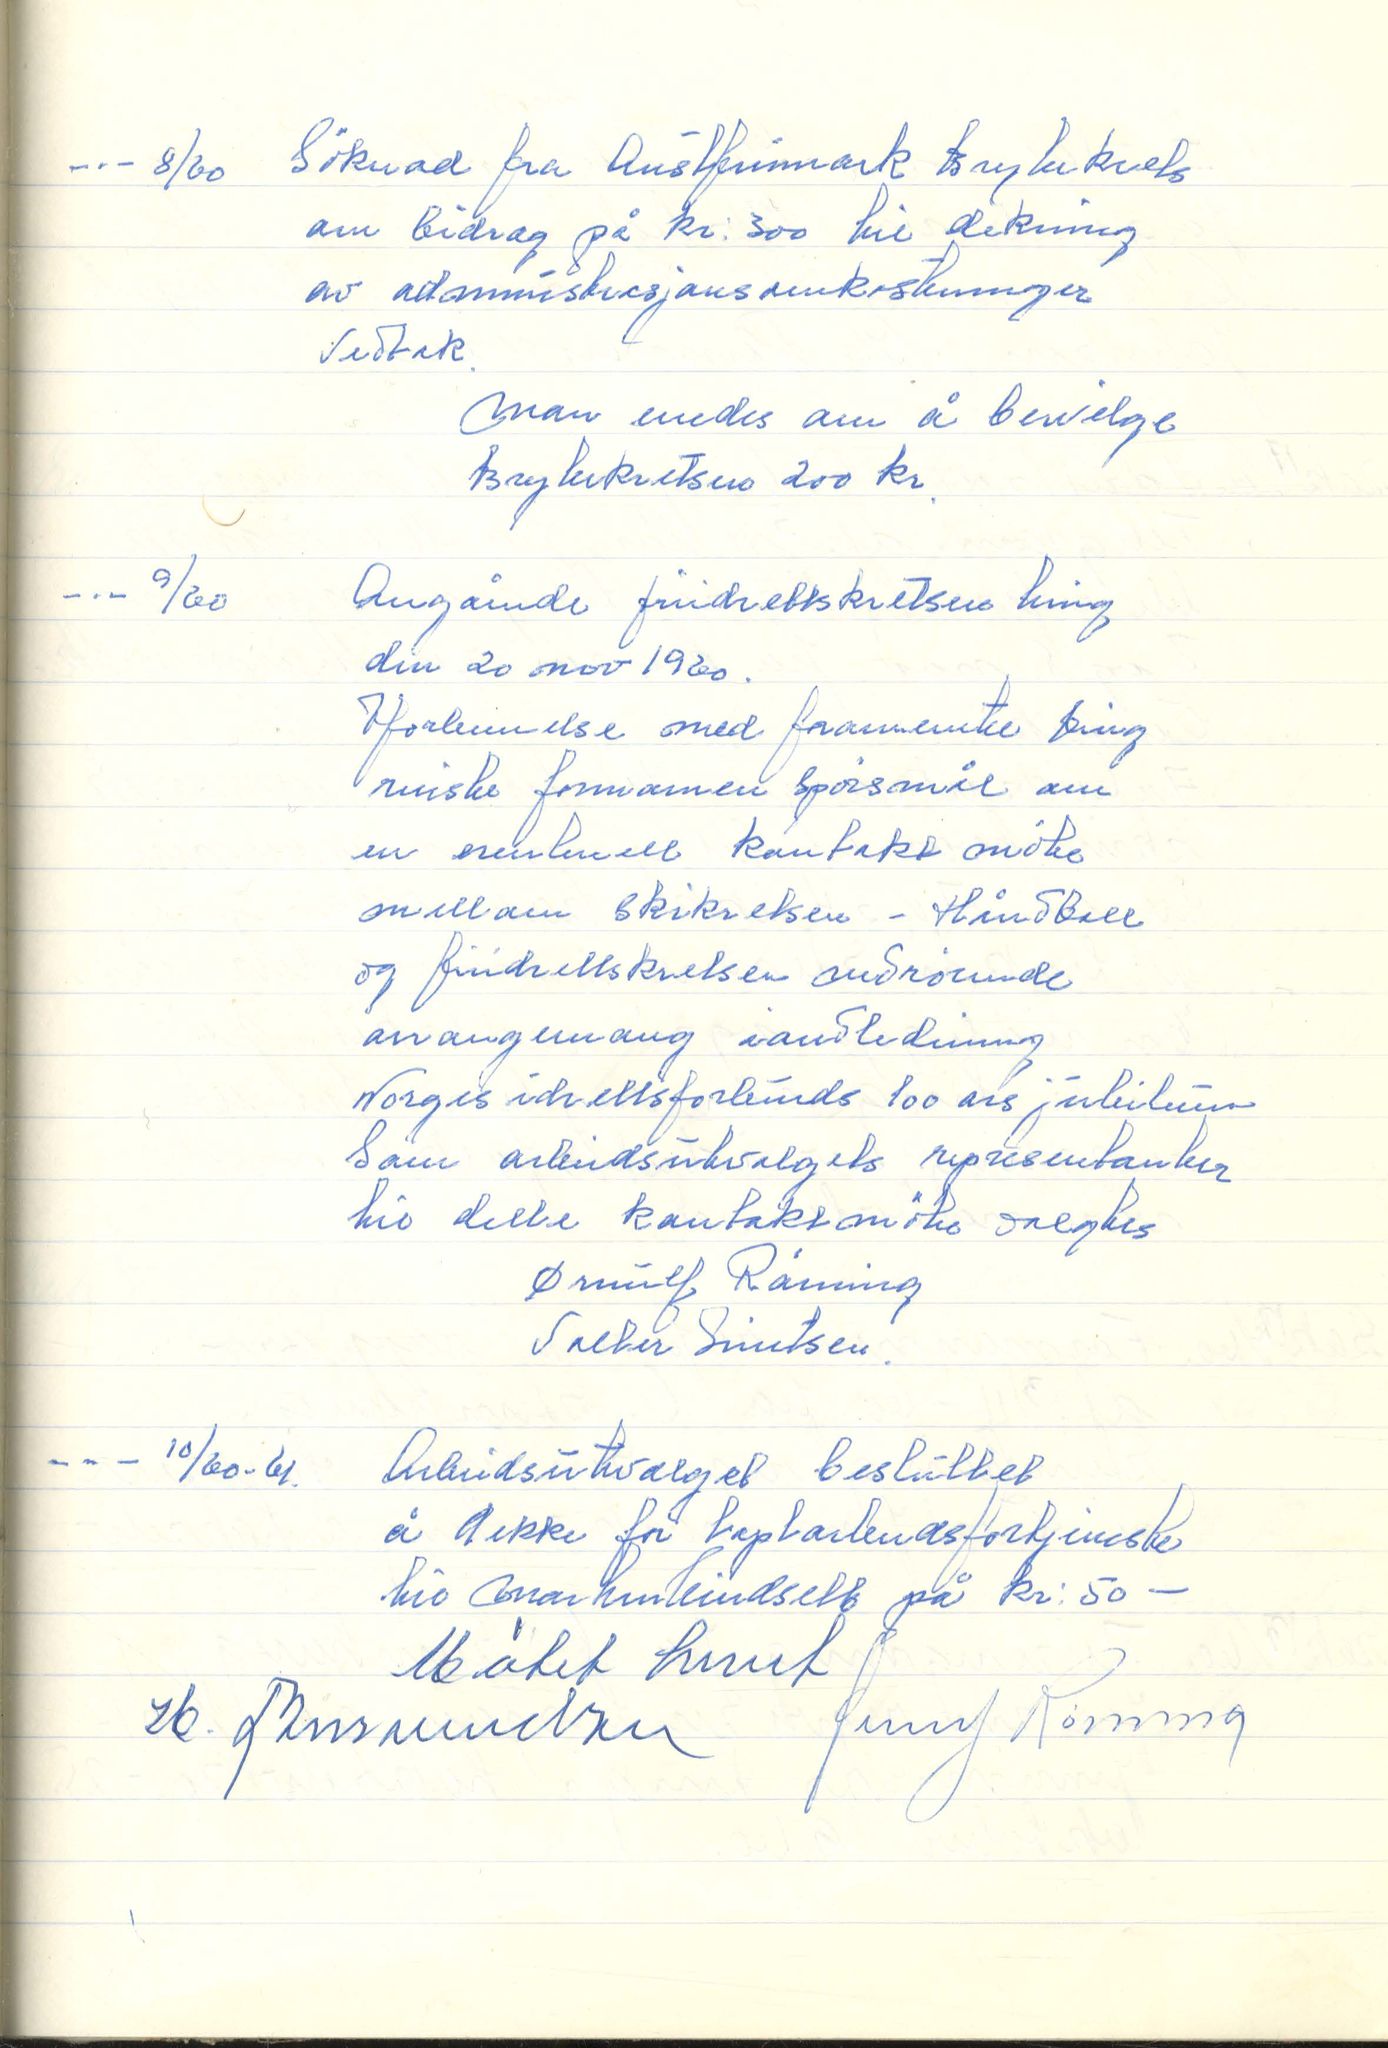 --- 8/60 Söknad fra Austfinnmark Brytekrets
om bidrag på kr: 300 til dekning
av administrasjonsomkostninger
Vedtak.
Man enedes om å bevilge
Brytekretsen 200 kr.
--- 9/60 Angående friidrettskretsens ting
den 20 nov 1960.
I forbinnelse med forannevnte ting
reiste formannen spörsmål om
en eventuell kontakt möte
mellom skikretsen - Håndball
og friidrettskretsen vedrörende
arrangemang i andledning
Norges idrettsforbunds 100 års jubileum
Som arbeidsutvalgets representanter
til dette kontaktmöte valgtes
Ørnulf Råning
Valter Knutsen.
--- 10/60-61. Arbeidsutvalget besluttet
å dekke for taptarbeidsfortjeneste
til på kr: 50 -
Mötet hevet
Råning